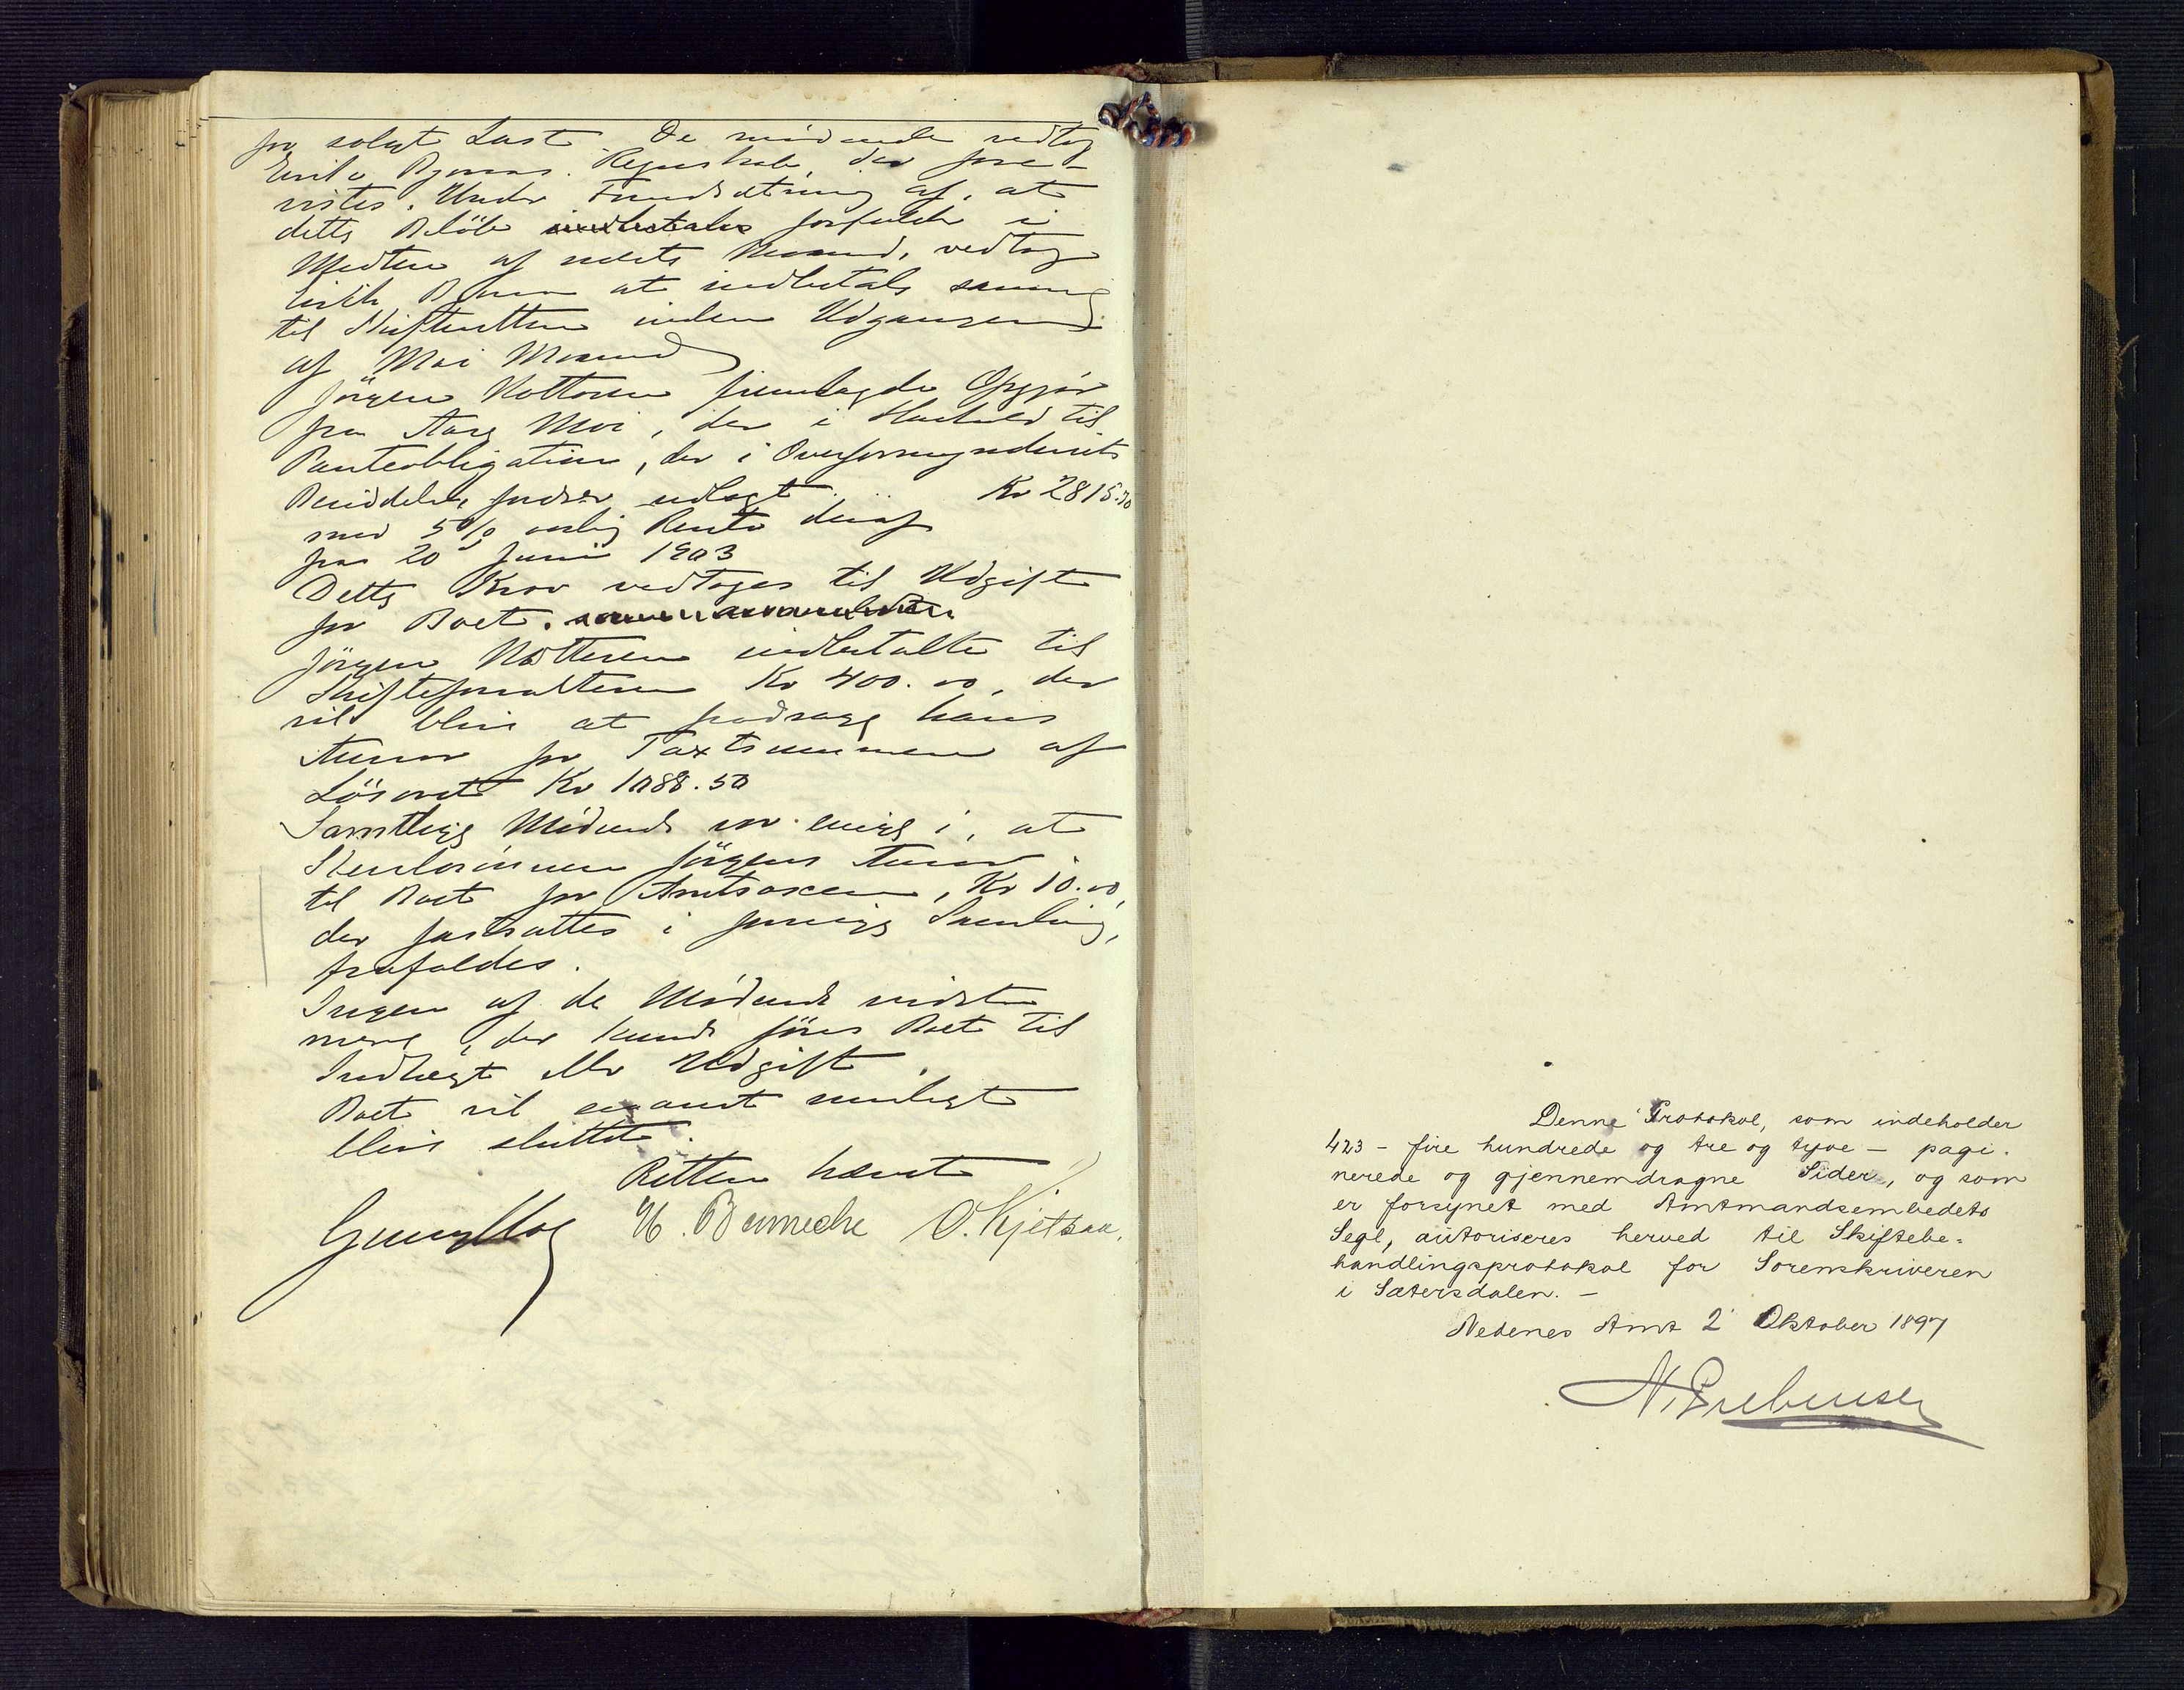 for solgt Last. De mødende vedtog
Regnskab, der fore-
vistes. Under Forudsætning af, at
dette Beløb indbetales forfalder i
Midten af næste Maaned, vedtog
at indbetale samme
til Skifteretten inden Udgangen
af Mai Maaned
Jörgen fremlagde Opgjør
fra Aare Moi, der i Henhold til
Panteobligation, der i Overformynderiets
fordrer udlagt Kr 2815.70
med 5% aarlig Rente deraf
fra 20 Juni 1903
Dette Krav vedtoges til Udgift
for Boet.
Jörgen indbetalte til
Skifteforvalteren Kr 400.00, der
vil blive at fradrage hans
Ansvar for Taxtsummen af
Løsøret Kr 1088.50
Samtlige Mødende var enige i, at
Jörgens Ansvar
til Boet for Kr 10.00,
der fastsattes i forrige Samling,
frafaldes.
Ingen af de Mødende vidste
mere, der kunde føres Boet til
Indtægt eller Udgift.
Boet vil snarest muligt
blive sluttet.
Retten hævet
O. Kjetsaa.
Denne Protokol, som indeholder
423 - fire hundrede og tre og tyve - pagi-
nerede og gjennemdragne Sider, og som
er forsynet med Amtmandsembedets
Segl, autoriseres herved til Skiftebe-
handlingsprotokol for Sorenskriveren
i Sætersdalen. -
Nedenes Amt 2 Oktober 1897
N. Prebensen